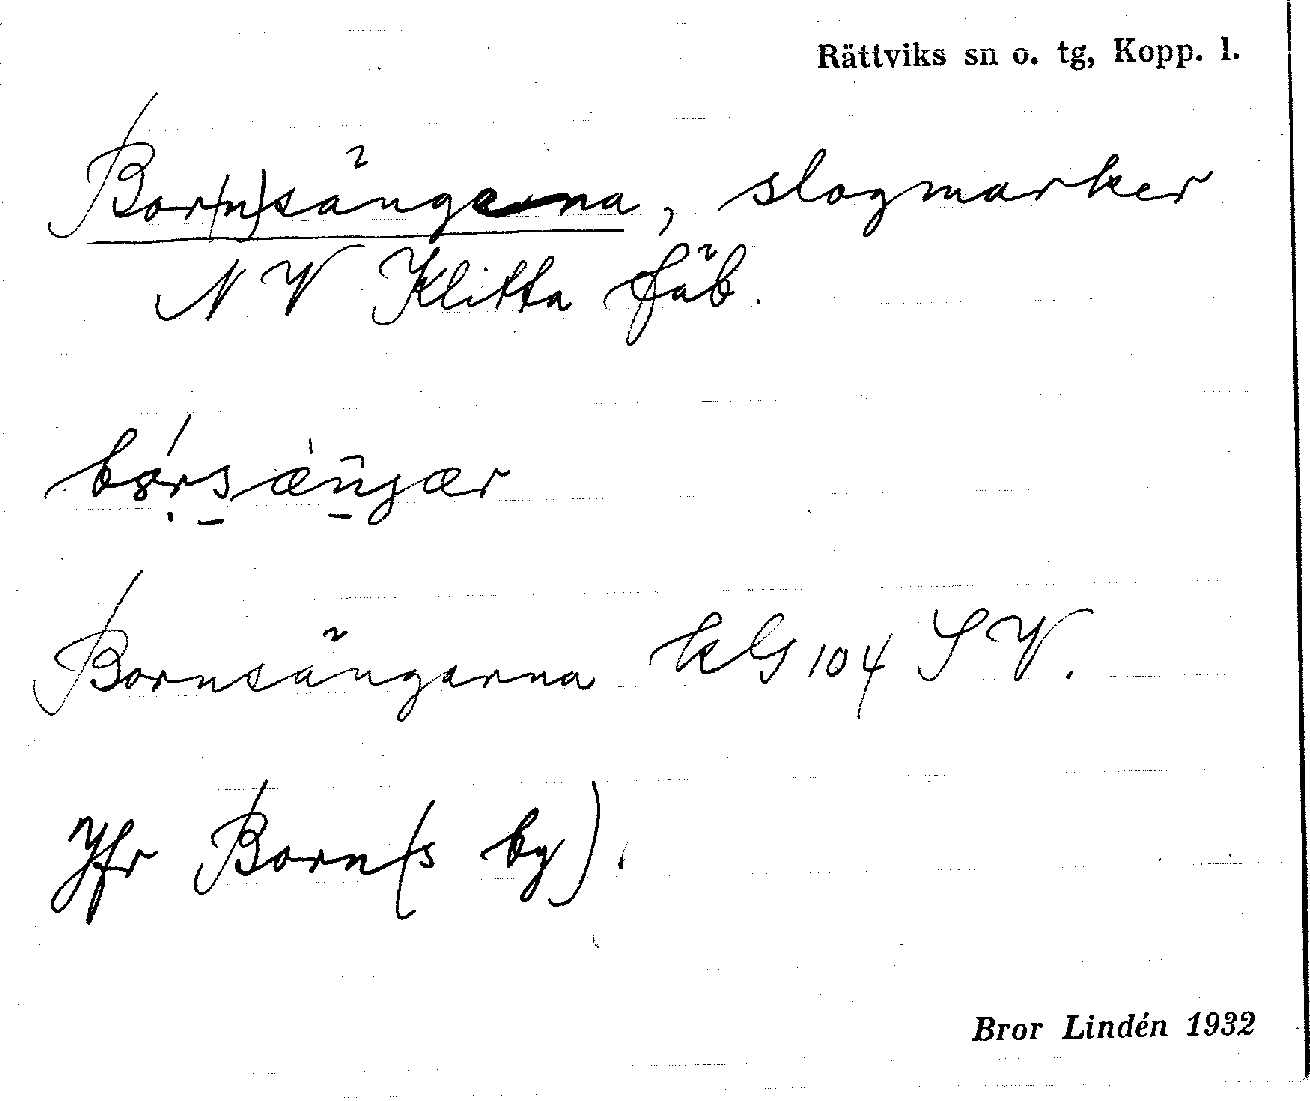 Rättviks sn o. tg, Kopp. l.
Bor(n)sängarna, slogmarker
NV Klitta fäb.
Bornsängarna kG 104 SV.
Jfr Born(s by).
Bror Lindén 1932